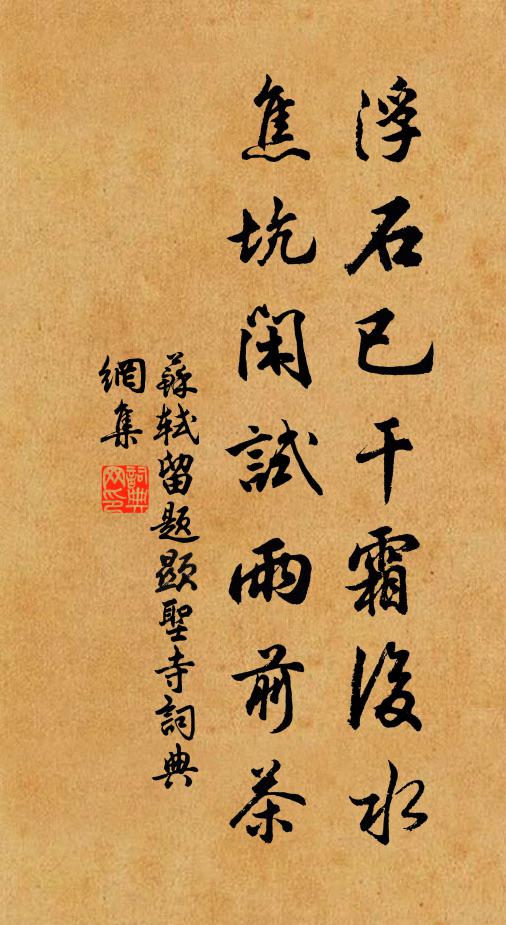 浮石已干霜後水
焦坑閑試雨前茶
蘇軾留题顯聖寺詞典
網集
詞典網印